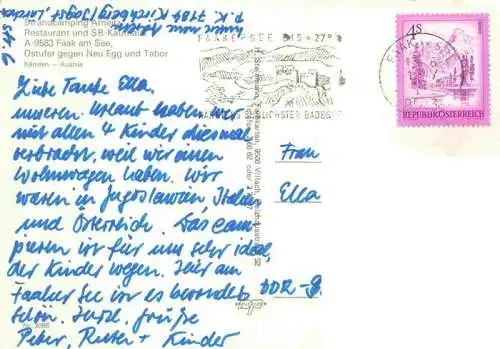 Strandcamping Arneitz
Restaurant und SB-Kaufhaus
A-9583 Faak am See,
Ostufer gegen Neu Egg und Tabor
Kärnten – Austria
P.K. 7184 Kirchberg/Jagst
FAAKERSEE BIS +27°
4S
REPUBLIK ÖSTERREICH
Liebe Tante Ella,
unseren Urlaub haben wir
mit allen 4 Kinder diesmal
verbracht, weil wir einen
Wohnwagen haben. Wir
waren in Jugoslawien, Italien
und Österreich. Das Cam-
pieren ist für uns sehr ideal,
der Kinder wegen. Hier am
Faaker See ist es besonders
schön.
Peter, + Kinder
Frau
Ella
DDR-